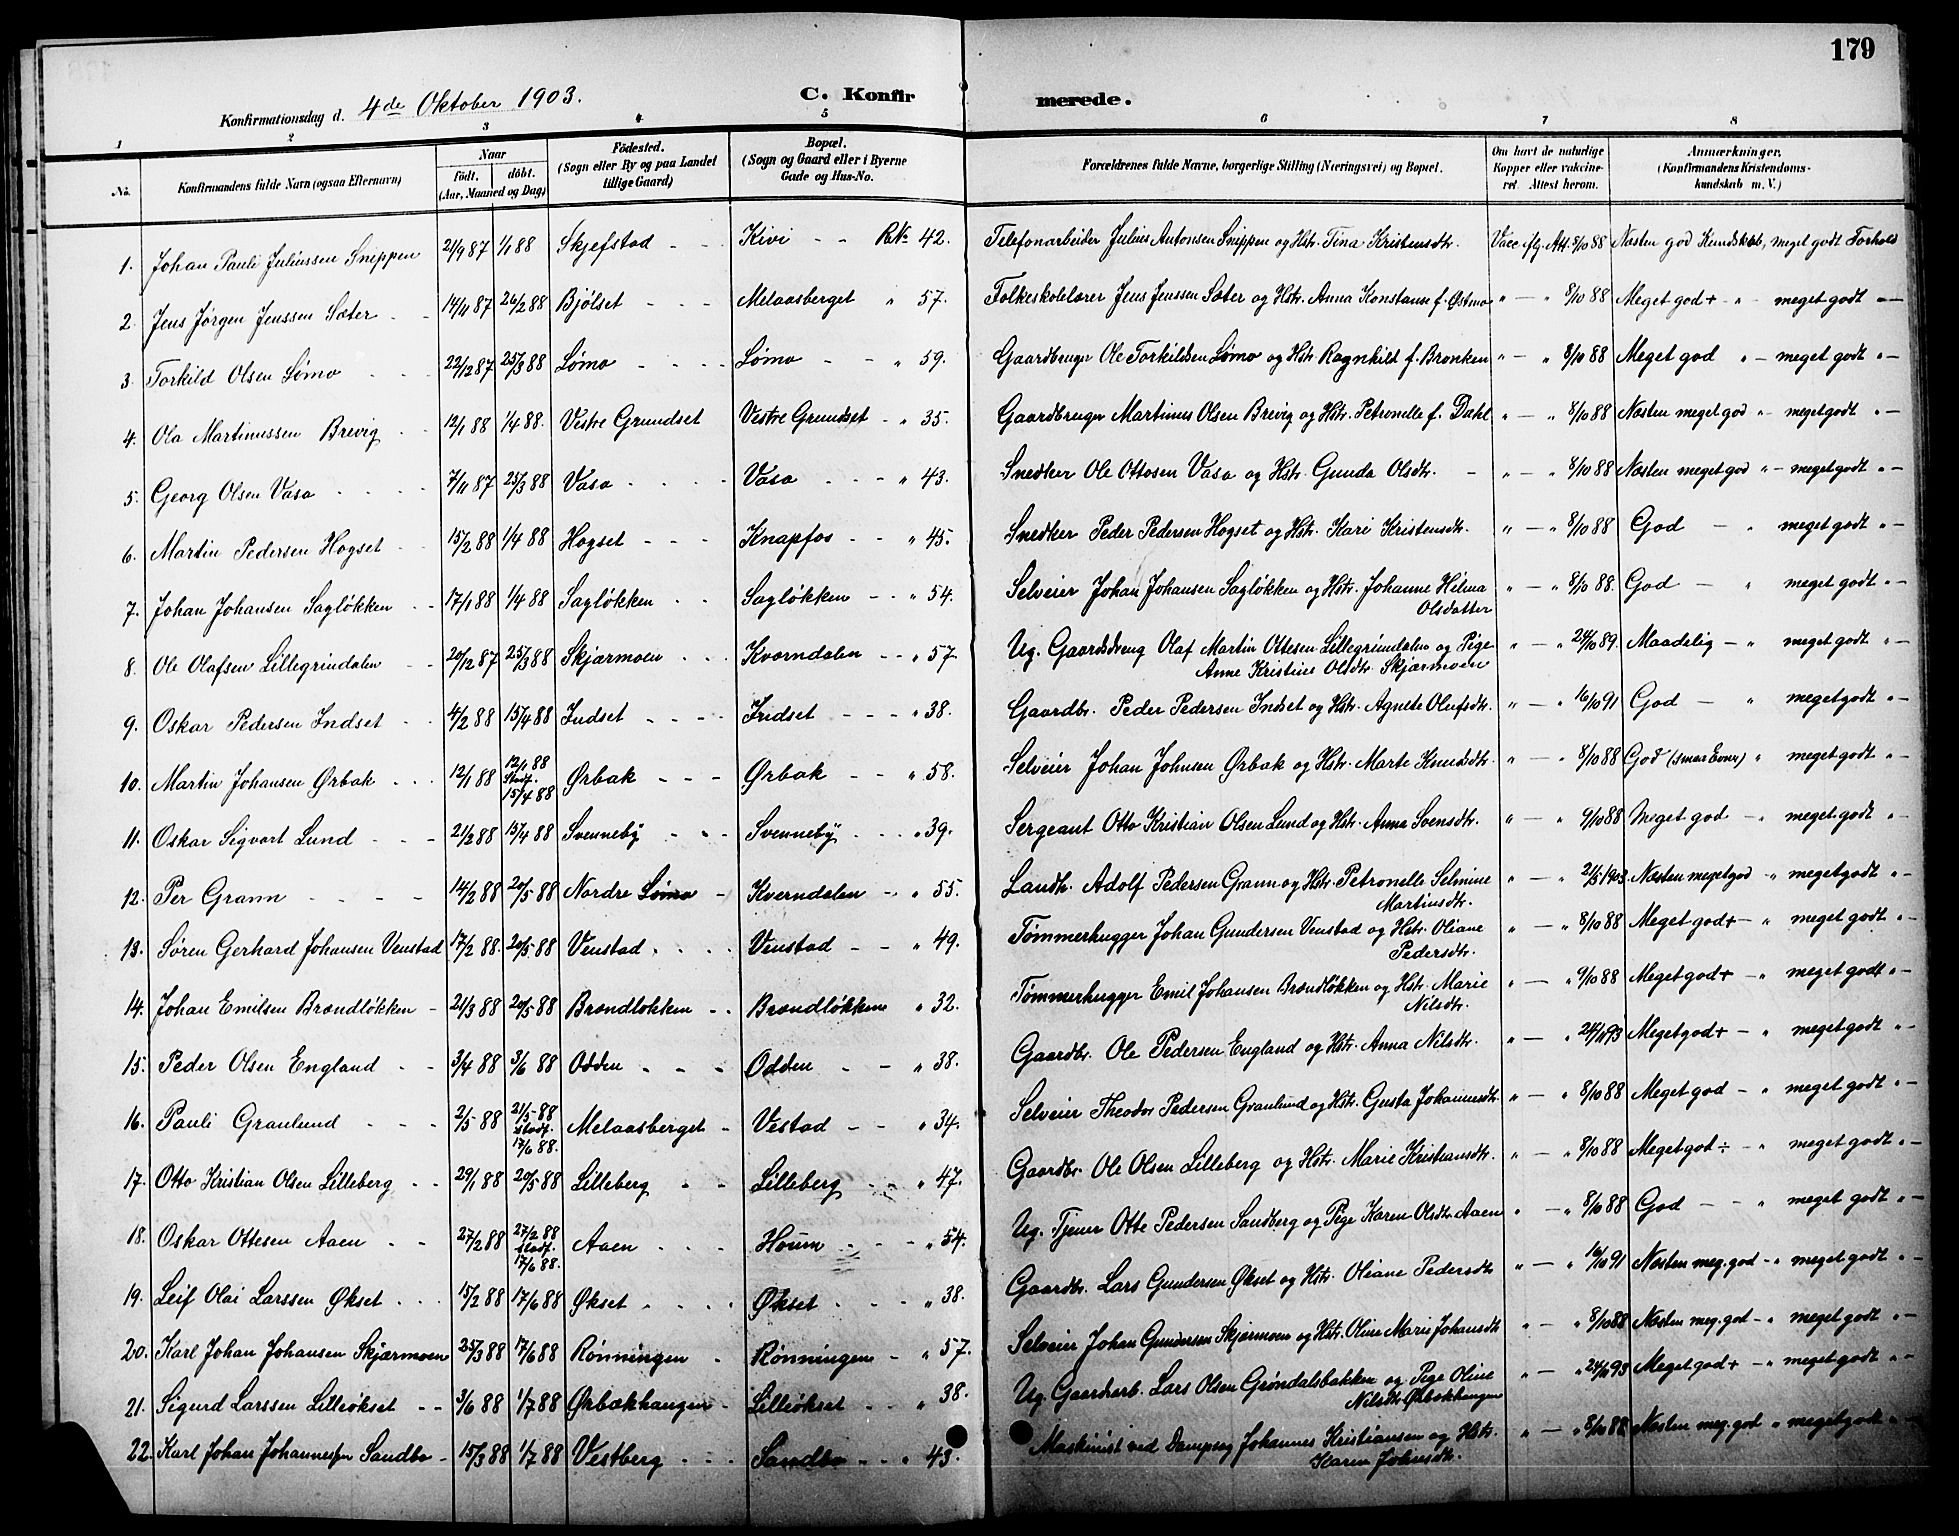 179
Konfirmationsdag d. 4de Oktober 1903.
C. Konfirmerede.
1 2 3 4 5 6 7 8
No.
Konfirmandens fulde Navn (ogsaa Efternavn)
Naar
födt. döbt.
(Aar, Maaned og Dag)
Födested.
(Sogn eller By og paa Landet
tillige Gaard)
Bopæl.
(Sogn og Gaard eller i Byerne
Gade og Hus-No.
Forældrenes fulde Navne, borgerlige Stilling (Næringsvei) og Bopæl.
Om havt de naturlige
Kopper eller vakcine-
ret. Attest herom.
Anmærkninger,
(Konfirmandens Kristendoms-
kundskab m. V.)
1. Johan Pauli Juliussen Snippen 21/9 87 1/1 88 Skjefstad - - Kivi - - RNo 42. Telefonarbeider Julius Antonsen Snippen og Hstr. Tina Kristensdtr. Vacc. iflg. Att. 8/10 88 Næsten god Kundskab, meget godt Forhold
2. Jens Jørgen Jenssen Sæter - - 14/11 87 26/2 88 Bjølset - - - Melaasberget " 57. Folkeskolelærer Jens Jenssen Sæter og Hstr. Anna Konstanse f. Østmo " — " 8/10 88 Meget god + " - meget godt " -
3. Torkild Olsen Lømo - - - 22/12 87 25/3 88 Lømo - - - - Lømo - - " 59. Gaardbruger Ole Torkildsen Lømo og Hstr. Ragnhild f. Bronken " — " 8/10 88 Meget god " - meget godt " -
4. Ola Martinussen Brevig - - 12/1 88 1/4 88. Vestre Grundset Vestre Grundset - " 35. Gaardbruger Martinus Olsen Brevig og Hstr. Petronelle f. Dahl " — " 8/10 88 Næsten meget god " - meget godt " -
5. Georg Olsen Vasa - - - - 7/11 87 25/3 88 Vasa - - - - Vasa - - - " 43. Snedker Ole Ottosen Vasa og Hstr. Gunda Olsdtr. - " — " 8/10 88 Næsten meget god " - meget godt " -
6. Martin Pedersen Hogset - - 15/2 88 1/4 88 Hogset - - - Knapfos - - " 45. Snedker Peder Pedersen Hogset og Hstr. Kari Kristensdtr. " — " 8/10 88 God - " meget godt " -
7. Johan Johansen Sagløkken - - 17/1 88 1/4 88 Sagløkken - - Sagløkken - - " 54. Selveier Johan Johansen Sagløkken og Hstr. Johanne Hilma " — " 8/10 88. God - " meget godt " -
Olsdatter
8. Ole Olafsen Lillegrindalen - - 20/12 87 25/3 88 Skjærmoen - - Kværndalen - - " 57 Ug. Gaardsdreng Olaf Martin Ottesen Lillegrindalen og Pige " — " 24/10 89. Maadelig - " meget godt " -
Anne Kristine Olsdtr. Skjærmoen
9. Oskar Pedersen Indset - - 4/2 88 15/4 88 Indset - - - - Indset - - - " 38. Gaardbr. Peder Pedersen Indset og Hstr. Agnete Olufsdtr. " — " 16/10 91 God - " meget godt " -
10. Martin Johansen Ørbak - - - 12/1 88 12/1 88 Stadf. 15/4 88 Ørbak - - - Ørbak - - " 58. Selveier Johan Johnsen Ørbak og Hstr. Marte Knudsdtr. " — " 8/10 88 God (smaa Evner) " meget godt " -
11. Oskar Sigvart Lund - - - 21/2 88 15/4 88 Svenneby - - - Svenneby - - - " 39. Sergeant Otto Kristian Olsen Lund og Hstr. Anna Svensdtr. " — " 9/10 88 Meget god - " meget godt " -
12. Per Grann - - - - 14/2 88 20/5 88 Nordre Lømo - Kverndalen - " 55. Landh. Adolf Pedersen Grann og Hstr. Petronelle Selmine " — " 2/5 1903 Næsten meget god - " meget godt " -
Martinsdtr.
13. Søren Gerhard Johansen Venstad 17/2 88. 20/5 88 Venstad - - - - Venstad - - " 49. Tømmerhugger Johan Gundersen Venstad og Hstr. Oliane " — " 8/10 88 Meget god + - " meget godt " -
Pedersdtr.
14. Johan Emilsen Brændløkken - 21/3 88 20/5 88 Brændløkken - - Brændløkken " 32. Tømmerhugger Emil Johansen Brændløkken og Hstr. Marie " — " 9/10 88 Meget god + - " meget godt " -
Nilsdtr.
15. Peder Olsen England - - 3/4 88 3/6 88 Odden - - - Odden - - " 38. Gaardbr. Ole Pedersen England og Hstr. Anna Nilsdtr. " — " 24/11 93 Meget god + - " meget godt " -
16. Pauli Granlund - - - 2/5 88 21/5 88 Stadf. 17/6 88. Melaasberget - Vestad - - " 34. Selveier Theodor Pedersen Granlund og Hstr. Gusta Johannesdtr " — " 8/10 88 Meget god - " meget godt " -
17. Otto Kristian Olsen Lilleberg - - 29/1 88 20/5 88 Lilleberg - - Lilleberg - - " 47. Gaardbr. Ole Olsen Lilleberg og Hstr. Marie Kristiansdtr. " — " 8/10 88 Meget god ÷ - " meget godt " -
18. Oskar Ottesen Aaen - - 27/2 88 27/2 88 Stadf. 17/6 88. Aaen - - - Houm - - - " 54. Ug. Tjener Otte Pedersen Sandberg og Pige Karen Olsdtr. Aaen " — " 8/10 88 God - - " meget godt " -
19. Leif Olai Larssen Økset - - - 15/2 88 17/6 88 Økset - - - - Økset - - - " 38. Gaardbr. Lars Gundersen Økset og Hstr. Oliane Pedersdtr " — " 16/10 91 Næsten meg. god - " meget godt " -
20. Karl Johan Johansen Skjærmoen 25/3 88 17/6 88 Rønningen - Rønningen - " 57. Selveier Johan Gundersen Skjærmoen og Hstr. Oline Marie Johansdtr " — " 8/10 88 Næsten meg. god - " meget godt " -
21. Sigurd Larssen Lilleøkset - - 3/6 88 1/7 88 Ørbækhaugen - Lilleøkset - - " 38. Ug. Gaardarb. Lars Olsen Grøndalsbakken og Pige Oline " — " 24/11 93 Meget god + - " meget godt " -
Nilsdtr. Ørbækhaugen
22. Karl Johan Johannessen Sandbo - 15/3 88 1/7 88 Vestberg - - - Sandbo - - " 43. Maskinist ved Dampsag Johannes Kristiansen og Hstr. " — " 8/10 88 Næsten meg. god " meget godt " -
Karen Johnsdtr.